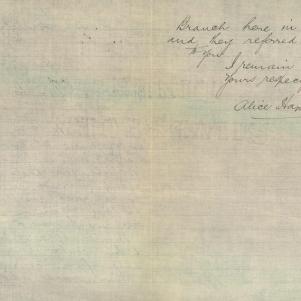 Branch here in
and they referred
to you
I remain
yours respec
Alice Ha